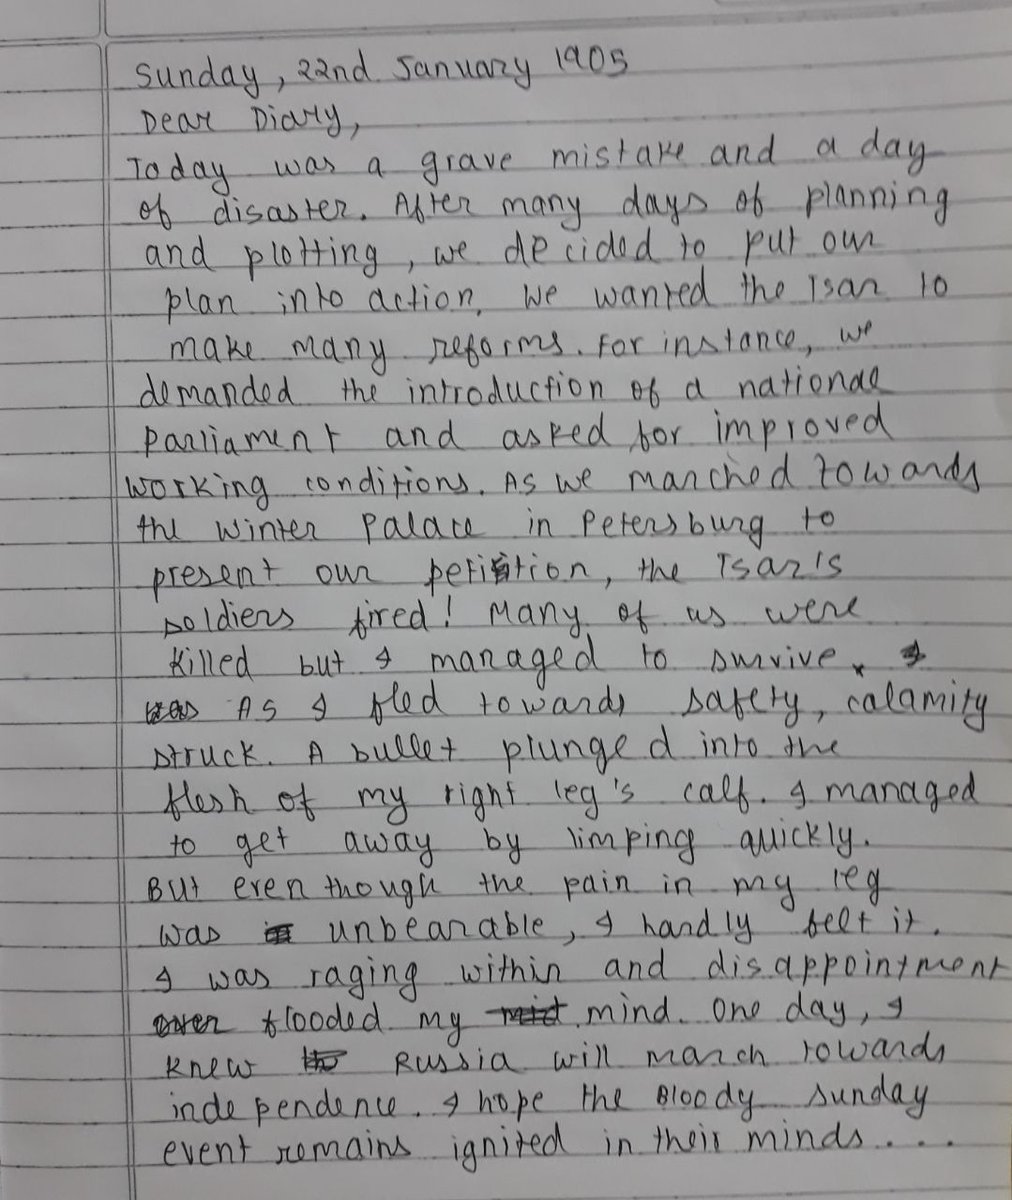 Sunday, 22nd January 1905
Dear Diary,
Today was a grave mistake and a day
of disaster. After many days of planning
and plotting, we decided to put our
plan into action. We wanted the Tsar to
make many reforms. For instance, we
demanded the introduction of a national
Parliament and asked for improved
working conditions. As we marched towards
the Winter Palace in Petersburg to
present our petition, the Tsar's
soldiers fired! Many of us were
killed but I managed to survive.
As I fled towards safety, calamity
struck. A bullet plunged into the
flesh of my right leg's calf. I managed
to get away by limping quickly.
But even though the pain in my leg
was unbearable, I hardly felt it.
I was raging within and disappointment
flooded my mind. One day, I
knew Russia will march towards
independence. I hope the Bloody Sunday
event remains ignited in their minds....